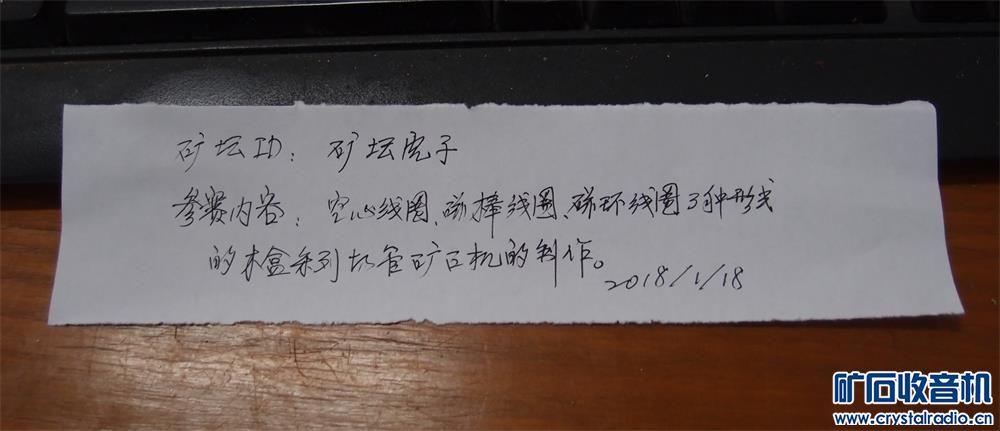 矿坛ID：矿坛完子
参赛内容：空心线圈、磁棒线圈、磁环线圈3种形式
的木盒系列拓宽矿石机的制作。
2018/1/18
矿石收音机
www.crystalradio.cn